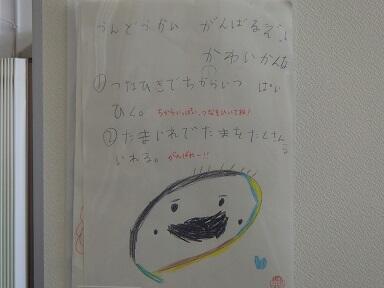 うんどうかい がんばるぞ!
かわいかんな
①つなひきでちからいっぱい
ひく。 ちからいっぱい、つなをひいてね!
②たまいれでたまをたくさん
いれる。 がんばれー!!